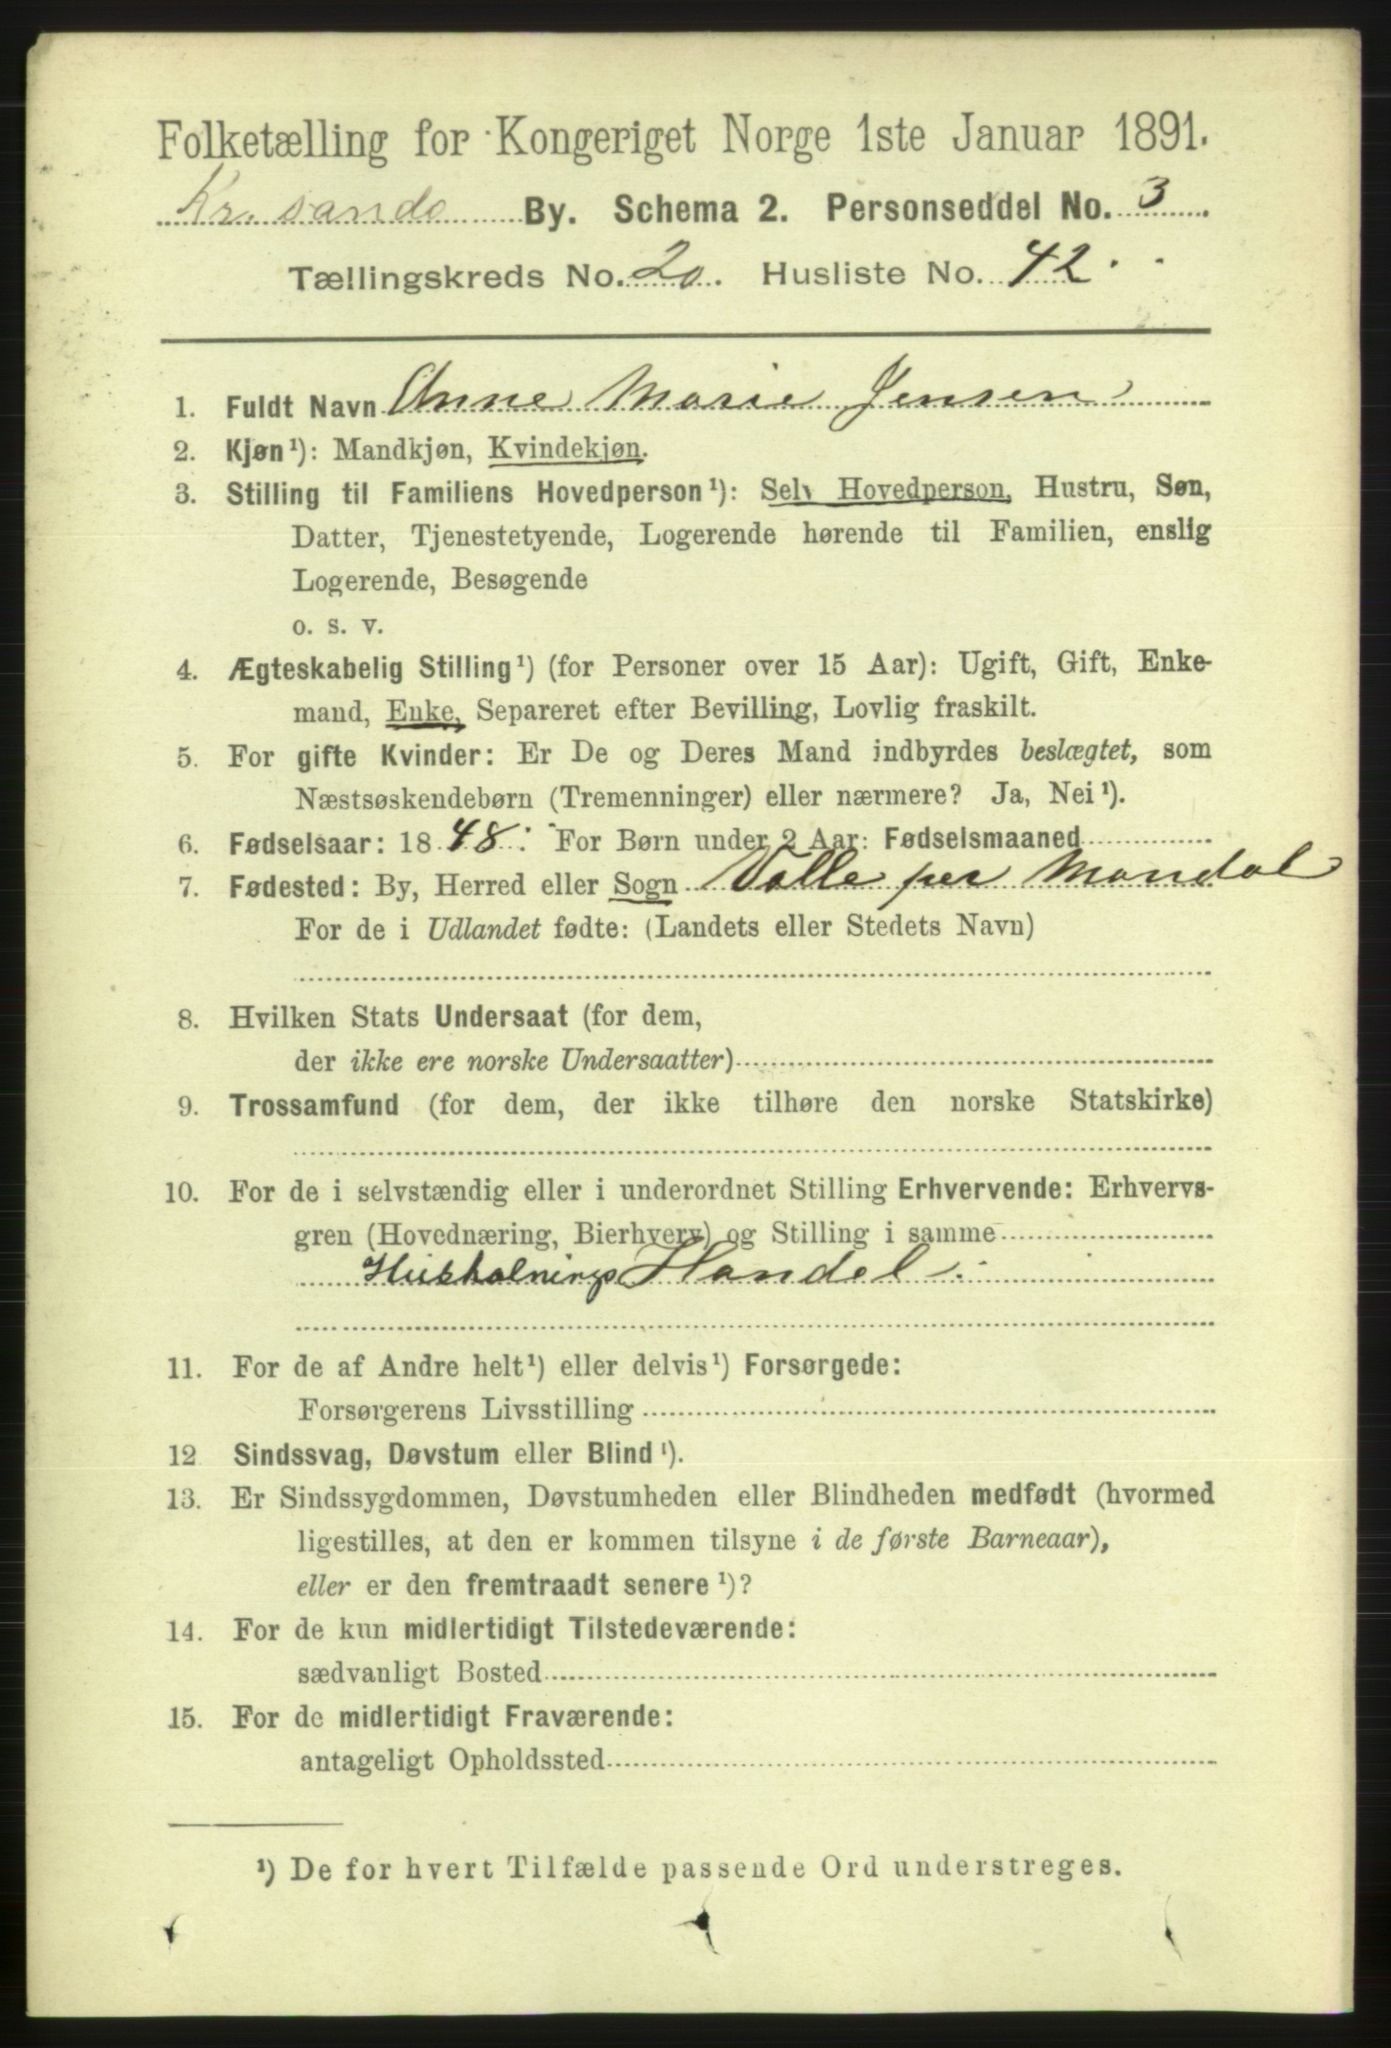 Folketælling for Kongeriget Norge 1ste Januar 1891.
Kr.sands By. Schema 2. Personseddel No. 3
Tællingskreds No. 20. Husliste No. 42.
1. Fuldt Navn Anne Marie Jensen
2. Kjøn¹): Mandkjøn, Kvindekjøn.
3. Stilling til Familiens Hovedperson¹): Selv Hovedperson, Hustru, Søn,
Datter, Tjenestetyende, Logerende hørende til Familien, enslig
Logerende, Besøgende
o. s. v.
4. Ægteskabelig Stilling¹) (for Personer over 15 Aar): Ugift, Gift, Enke-
mand, Enke, Separeret efter Bevilling, Lovlig fraskilt.
5. For gifte Kvinder: Er De og Deres Mand indbyrdes beslægtet, som
Næstsøskendebørn (Tremenninger) eller nærmere? Ja, Nei¹).
6. Fødselsaar: 1848. For Børn under 2 Aar: Fødselsmaaned
7. Fødested: By, Herred eller Sogn Valle per Mandal
For de i Udlandet fødte: (Landets eller Stedets Navn)
8. Hvilken Stats Undersaat (for dem,
der ikke ere norske Undersaatter)
9. Trossamfund (for dem, der ikke tilhøre den norske Statskirke)
10. For de i selvstændig eller i underordnet Stilling Erhvervende: Erhvervs-
gren (Hovednæring, Bierhverv) og Stilling i samme
Husholnings Handel.
11. For de af Andre helt¹) eller delvis¹) Forsørgede:
Forsørgerens Livsstilling
12 Sindssvag, Døvstum eller Blind¹).
13. Er Sindssygdommen, Døvstumheden eller Blindheden medfødt (hvormed
ligestilles, at den er kommen tilsyne i de første Barneaar),
eller er den fremtraadt senere¹)?
14. For de kun midlertidigt Tilstedeværende:
sædvanligt Bosted
15. For de midlertidigt Fraværende:
antageligt Opholdssted
¹) De for hvert Tilfælde passende Ord understreges.